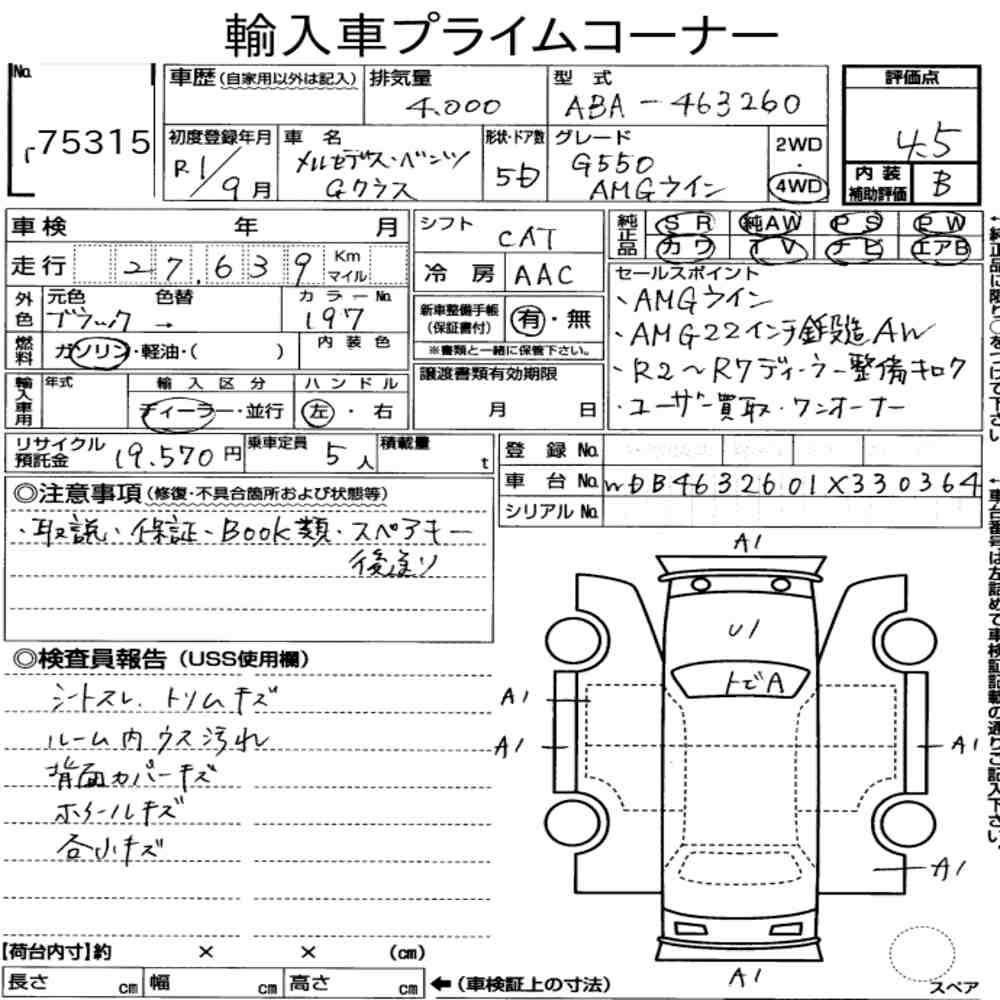 輸入車プライムコーナー
No.
75315
車歴(自家用以外は記入)
排気量
4.000
型式
ABA-463260
評価点
4.5
初度登録年月
R1/9月
車名
メルセデス・ベンツ
Gクラス
形状・ドア数
5D
グレード
G550
AMGライン
2WD
・
4WD
内装
補助評価
B
車検 年 月
シフト
CAT
純正品
SR 純AW PS PW
カワ TV ナビ エアB
走行 27,639 Km
マイル
冷房 AAC
セールスポイント
・AMGライン
・AMG22インチ鍛造AW
・R2~R7ディーラー整備キロク
・ユーザー買取・ワンオーナー
外色
元色 色替
ブラック →
カラーNo.
197
新車整備手帳
(保証書付)
有・無
※書類と一緒に保管下さい。
燃料
ガソリン・軽油・( )
内装色
輸入車用
年式
輸入区分
ディーラー・並行
ハンドル
左・右
譲渡書類有効期限
月 日
リサイクル
預託金
19.570円
乗車定員
5人
積載量
t
登録No.
車台No.
WDB4632601X330364
シリアルNo.
◎注意事項(修復・不具合箇所および状態等)
・取説、保証、Book類・スペアキー
後送り
◎検査員報告(USS使用欄)
シートスレ、トリムキズ
ルーム内ウス汚れ
背面カバーキズ
ホイールキズ
各小キズ
A1
U1
トビA
A1
A1
A1
A1
A1
スペア
【荷台内寸】約 × × (cm)
長さ cm 幅 cm 高さ cm
←(車検証上の寸法)
←純正品に限り○をつけて下さい
←車台番号は左詰めで車検証記載の通りご記入下さい。